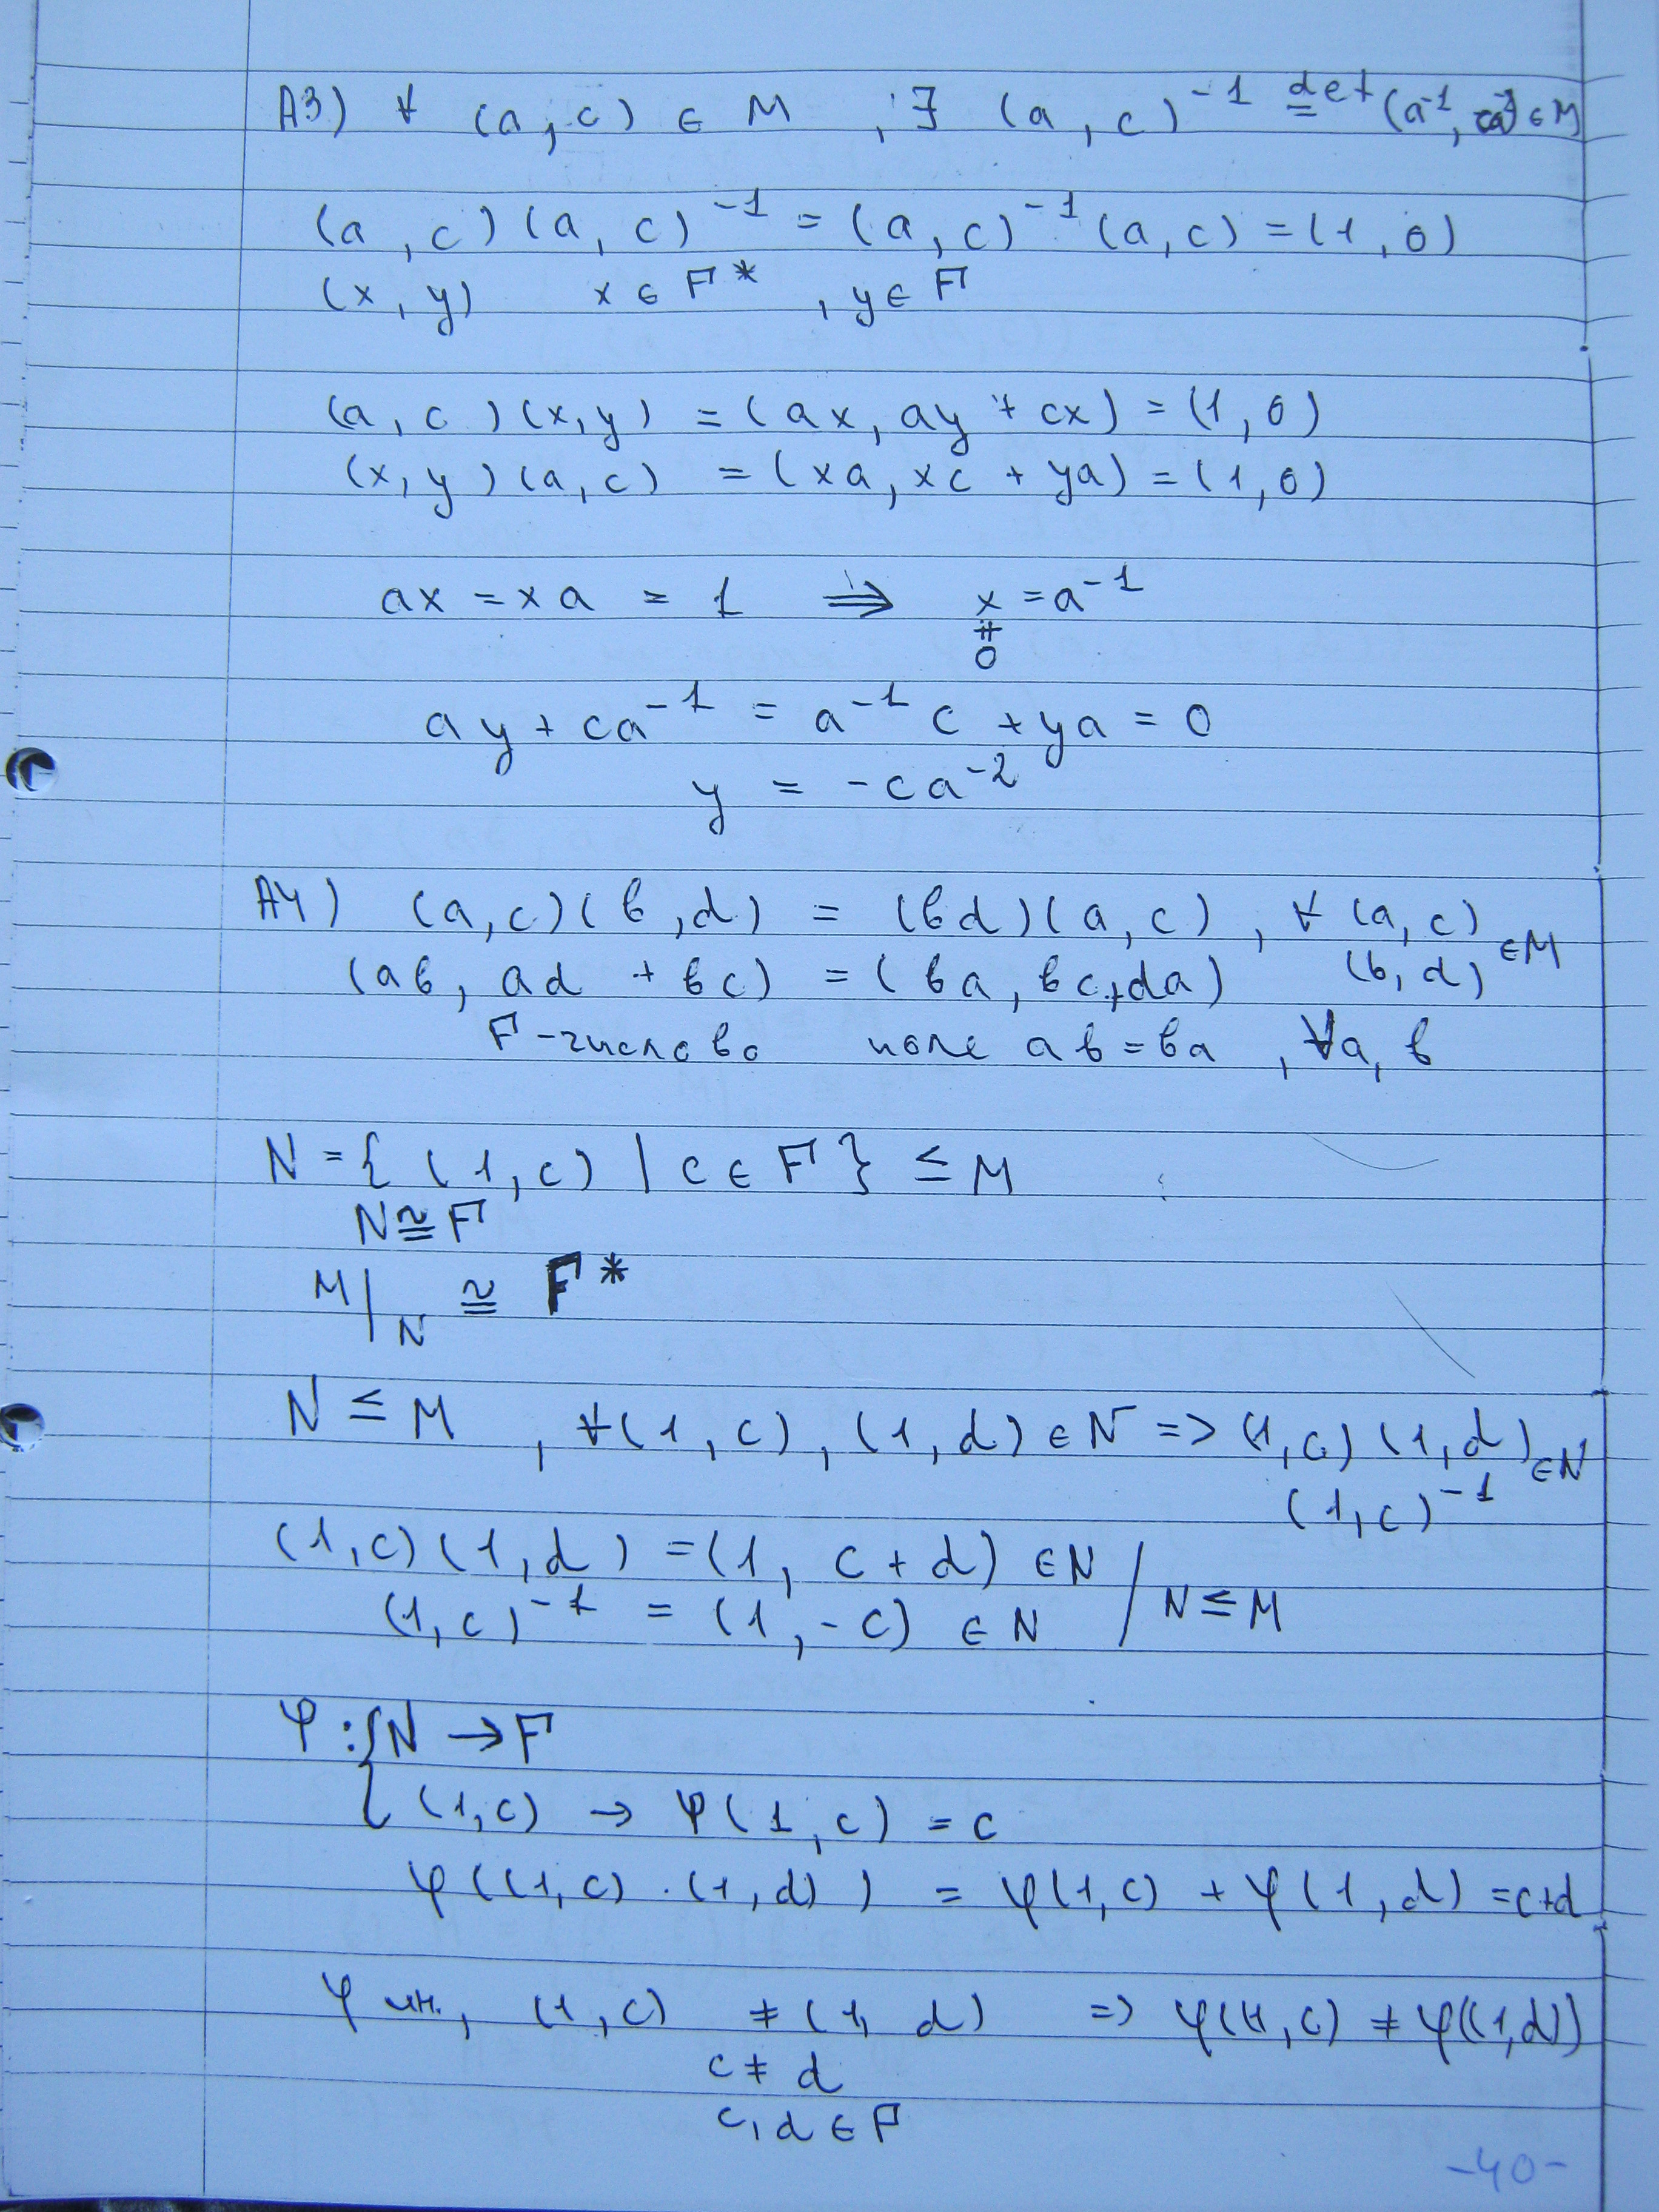 A3) ∀ (a, c) ∈ M , ∃ (a, c)⁻¹ def= (a⁻¹, ) ∈ M
(a, c)(a, c)⁻¹ = (a, c)⁻¹ (a, c) = (1, 0)
(x, y) x ∈ F* , y ∈ F
(a, c)(x, y) = (ax, ay + cx) = (1, 0)
(x, y)(a, c) = (xa, xc + ya) = (1, 0)
ax = xa = 1 ⇒ x = a⁻¹
≠
0
ay + ca⁻¹ = a⁻¹c + ya = 0
y = -ca⁻²
A4) (a, c)(в, d) = (вd)(a, c) , ∀ (a, c)
(в, d) ∈ M
(aв, ad + вc) = (вa, вc + da)
F - числово поле aв = вa , ∀a, в
N = { (1, c) | c ∈ F } ≤ M
N ≅ F
M/N ≅ F*
N ≤ M , ∀(1, c), (1, d) ∈ N => (1, c)(1, d) ∈ N
(1, c)⁻¹
(1, c)(1, d) = (1, c + d) ∈ N / N ≤ M
(1, c)⁻¹ = (1, -c) ∈ N
φ : { N → F
(1, c) → φ(1, c) = c
φ((1, c) . (1, d)) = φ(1, c) + φ(1, d) = c+d
φ ин., (1, c) ≠ (1, d) => φ((1, c) ≠ φ((1, d))
c ≠ d
c, d ∈ F
-40-